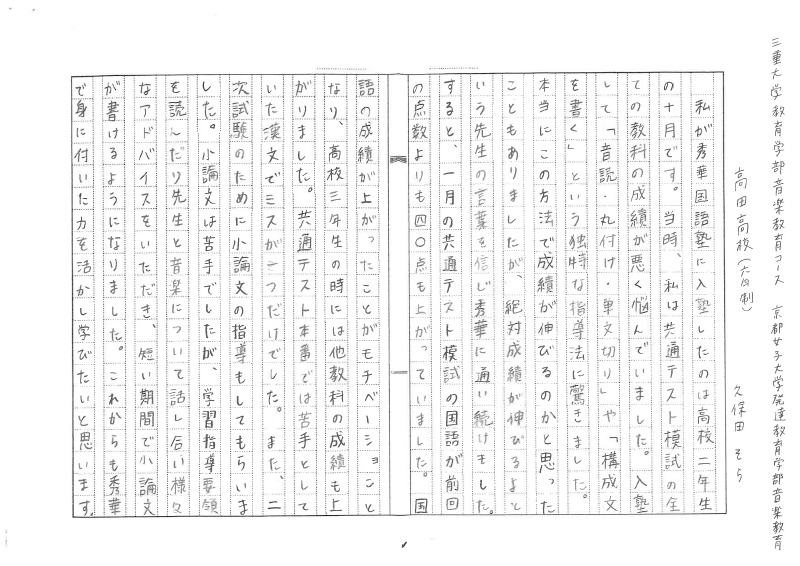 三重大学教育学部音楽教育コース　京都女子大学発達教育学部音楽教育
高田高校（六年制）　久保田そら
　私が秀華国語塾に入塾したのは高校二年生
の十月です。当時、私は共通テスト模試の全
ての教科の成績が悪く悩んでいました。入塾
して「音読・丸付け・単文切り」や「構成文
を書く」という独特な指導法に驚きました。
本当にこの方法で成績が伸びるのかと思った
こともありましたが、絶対成績が伸びるよと
いう先生の言葉を信じ秀華に通い続けました。
すると、一月の共通テスト模試の国語が前回
の点数よりも四〇点も上がっていました。国
語の成績が上がったことがモチベーションと
なり、高校三年生の時には他教科の成績も上
がりました。共通テスト本番では苦手として
いた漢文でミスが一つだけでした。また、二
次試験のために小論文の指導もしてもらいま
した。小論文は苦手でしたが、学習指導要領
を読んだり先生と音楽について話し合い様々
なアドバイスをいただき、短い期間で小論文
が書けるようになりました。これからも秀華
で身に付いた力を活かし学びたいと思います。